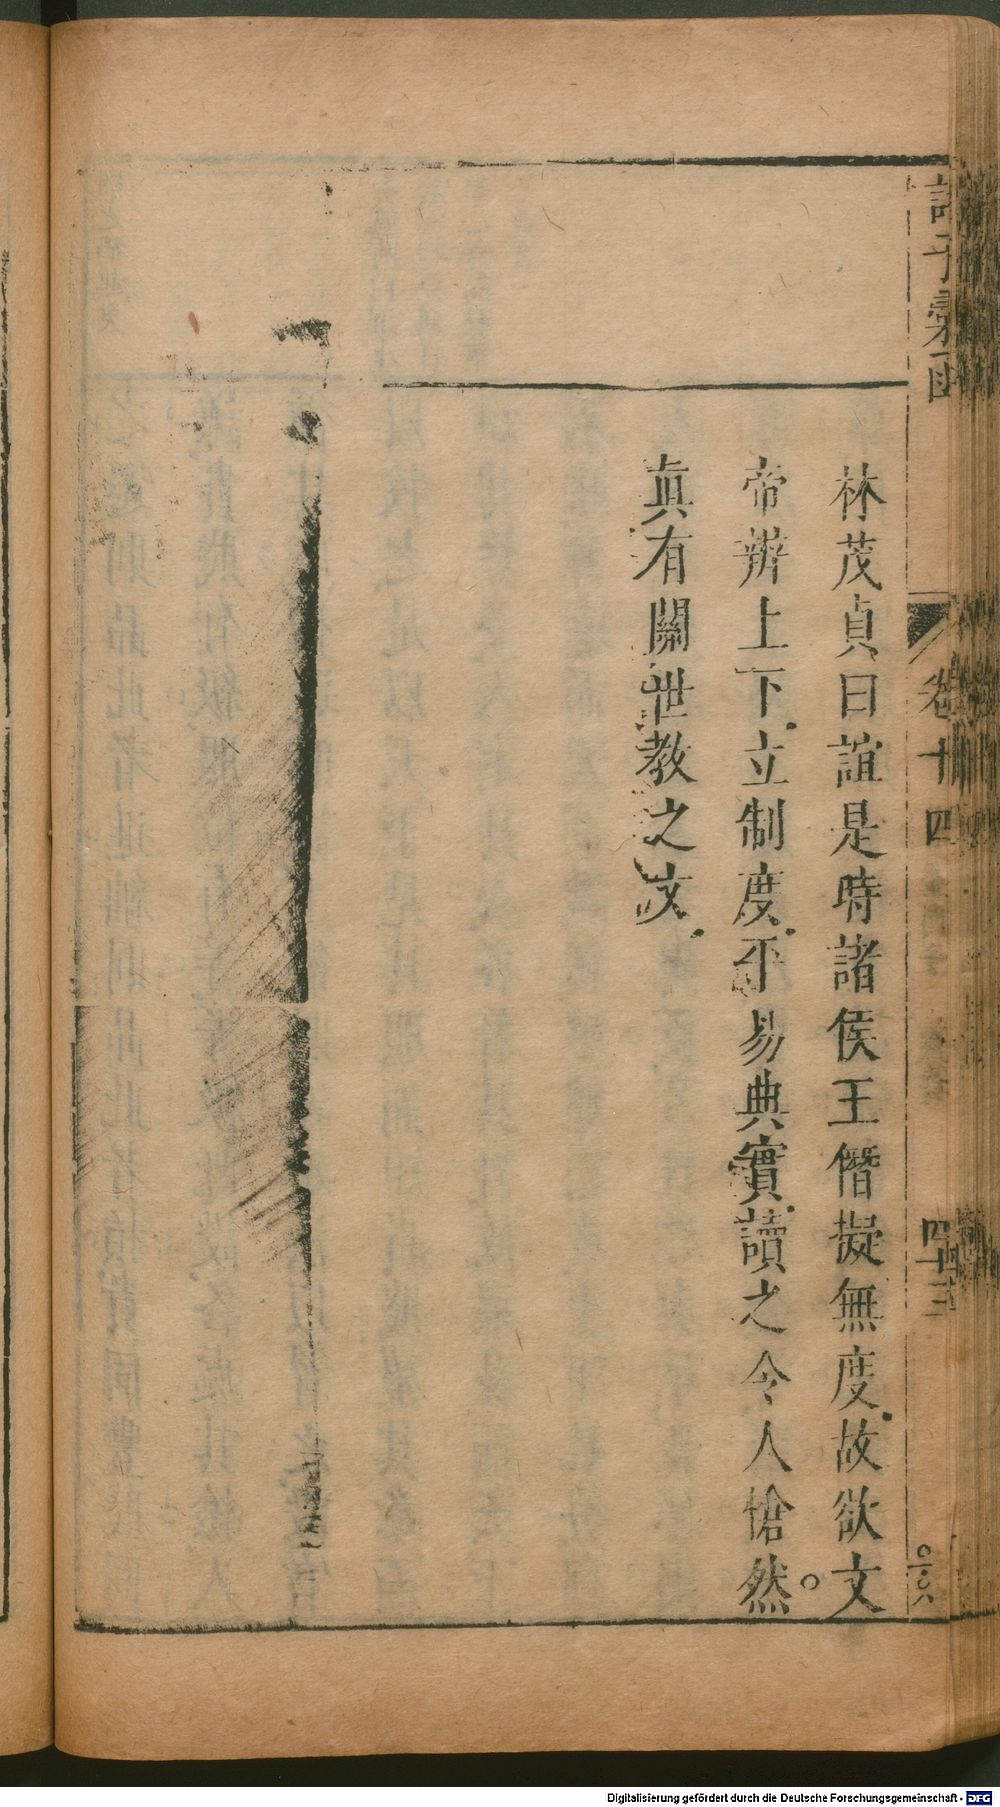 諸子彙函
卷十四
四十三
林茂貞曰誼是時諸侯王僭擬無度故欲文
帝辨上下立制度平易典實讀之令人愴然
真有關世教之文
Digitalisierung gefördert durch die Deutsche Forschungsgemeinschaft - DFG